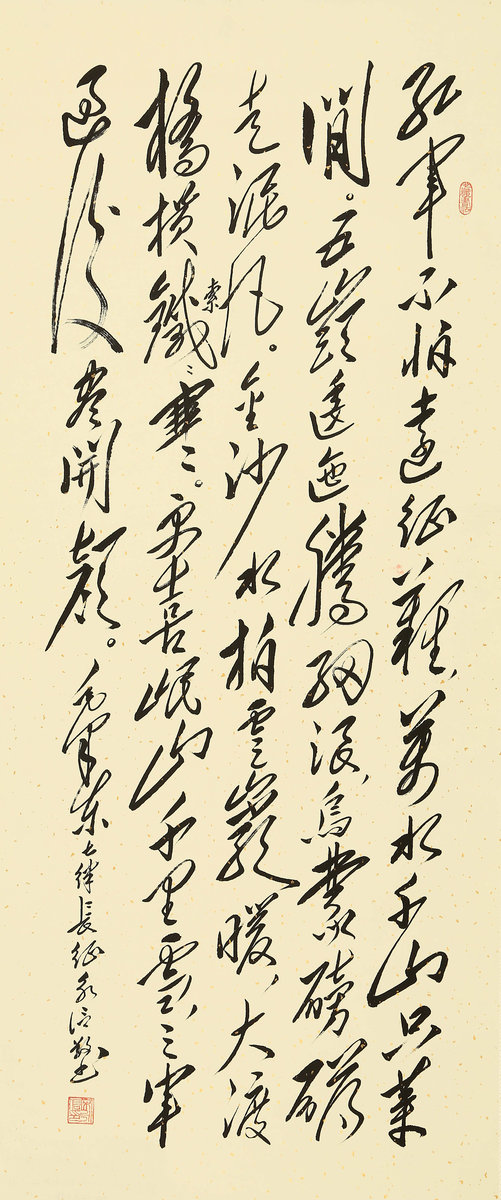 紅軍不怕遠征難，萬水千山只等
閒。五嶺逶迤騰細浪，烏蒙磅礴
走泥丸。金沙水拍雲巖暖，大渡
橋橫鐵索寒。更喜岷山千里雪，三軍
過後盡開顏。毛澤東七律長征